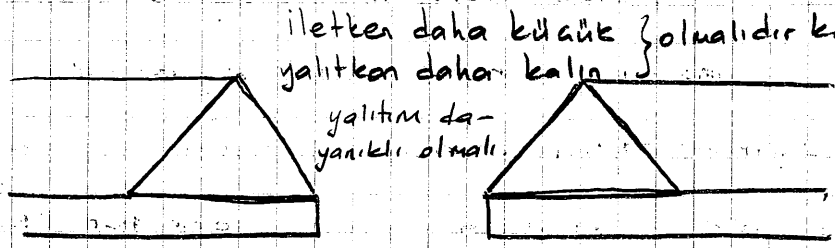 iletken daha küçük } olmalıdır k
yalıtkan daha kalın
yalıtım da-
yanıklı olmalı.